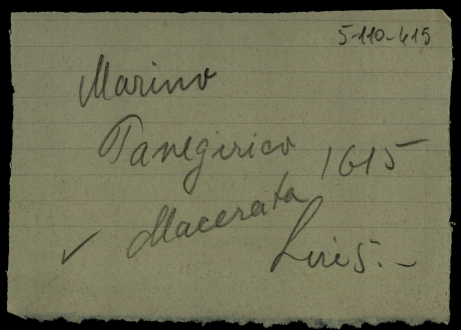 5-110-415
Marino
Panegirico 1615
✓ Macerata
Lire 5.-